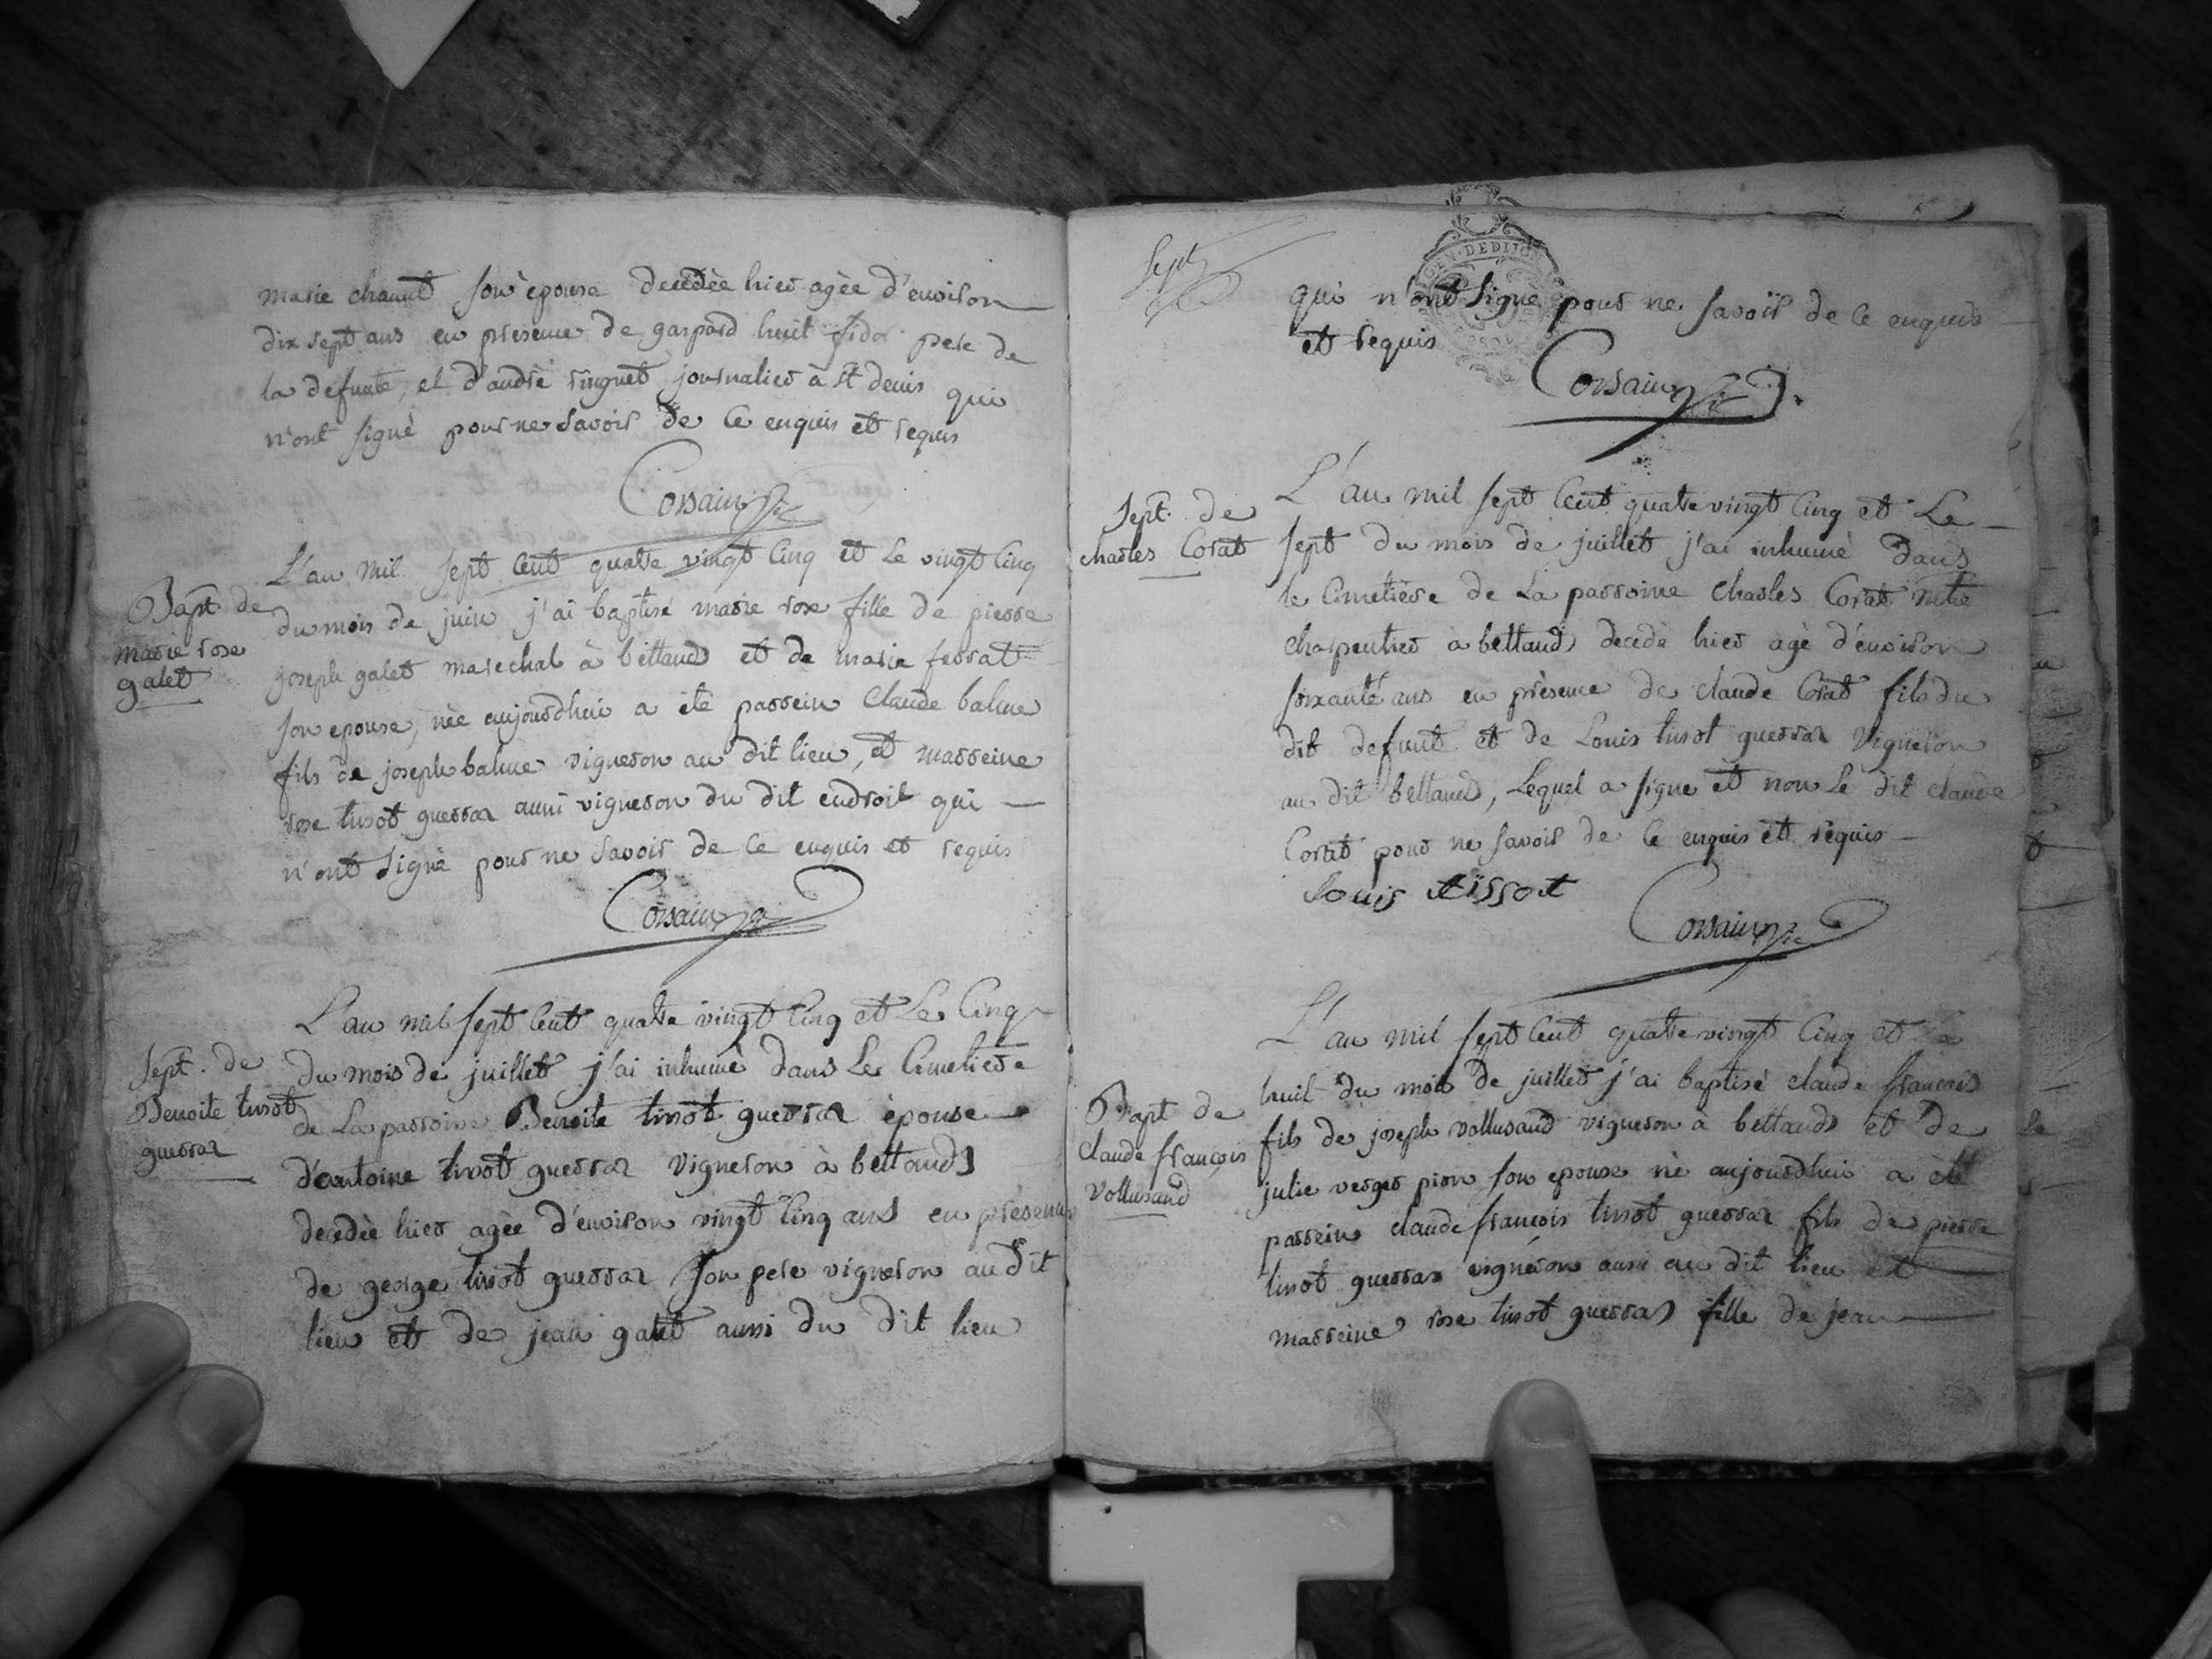 marie chanut son èpouse decedèe hier agèe d'environ
dix sept ans en presence de gaspard huit pere de
la defunte, et d'andrè ringuet journalier à st denis qui
n'ont signè pour ne savoir de ce enquis et requis
Corsain
Bapt. de
marie rose
galet
L'an mil sept cent quatre vingt cinq et le vingt cinq
du mois de juin j'ai baptisé marie rose fille de pierre
joseph galet marechal à bettand et de marie ferrat
son epouse, nèe aujourdhui a ètè parrein claude balme
fils de joseph balme vigneron au dit lieu, et marreine
rose tissot guerraz aussi vigneron du dit endroit qui
n'ont signè pour ne savoir de ce enquis et requis
Corsain
Sept. de
Benoite tissot
guerraz
L'an mil sept cent quatre vingt cinq et Le cinq
du mois de juillet j'ai inhumè dans Le cimetiere
de La parroine Benoite tissot guerraz èpouse
d'antoine tissot guerraz vigneron à bettand
decedèe hier agèe d'environ vingt cinq ans en prèsence
de george tissot guerraz son pere vigneron au dit
lieu et de jean galet aussi du dit lieu
Sept
GEN. DE DIJON
qui n'ont signe pour ne savoir de ce enquis
et requis
Corsain
Sept. de
charles Corat
L'an mil sept cent quatre vingt cinq et Le
sept du mois de juillet j'ai inhumè dans
le cimetière de La parroine charles Corat mtre
charpentier à bettand decedè hier agè d'environ
soixante ans en prèsence de claude Corat fils du
dit defunt et de Louis tissot guerraz vigneron
au dit bettand, Lequel a signe et non Le dit claude
Corat pour ne savoir de ce enquis et requis
Louis tissot
Corsain
Bapt de
claude françois
vollusand
L'an mil sept cent quatre vingt cinq et le
huit du mois de juillet j'ai baptisè claude francois
fils de joseph vollusand vigneron à bettand et de
julie verger pion son epouse nè aujourdhui a ètè
parrein claude francois tissot guerraz fils de pierre
tissot guerraz vignéron aussi au dit lieu et
marreine rose tissot guerraz fille de jean